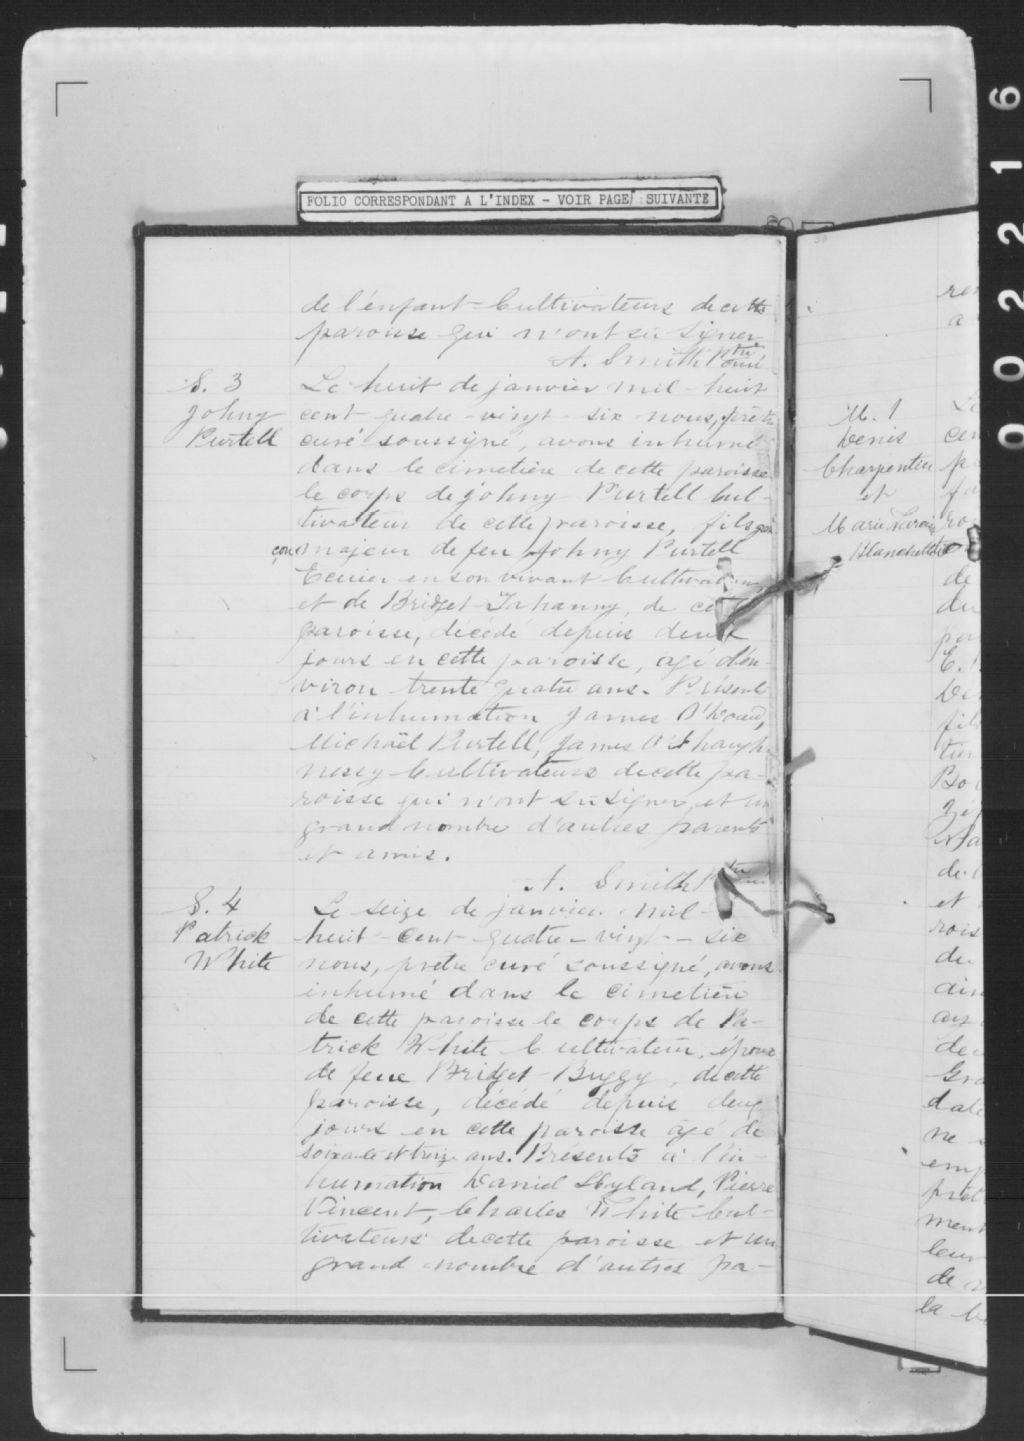 FOLIO CORRESPONDANT A L'INDEX - VOIR PAGE SUIVANTE
de l'enfant Cultivateurs de cette
paroisse qui n'ont su signer
A. Smith Ptre Curé
S. 3
Johny
Purtell
Le huit de janvier mil-huit
cent-quatre-vingt-six nous, prêtre
curé soussigné, avons inhumé
dans le cimetière de cette paroisse
le corps de Johny Purtell Cul-
tivateur de cette paroisse, fils gar
çon majeur de feu Johny Purtell
Ecuier en son vivant Cultivateur
et de Bridget Tahanny, de cette
paroisse, décédé depuis deux
jours en cette paroisse, agé d'en-
viron trente quatre ans. Présent
à l'inhumation James
Michaël Purtell, James O'Shaugh
nessy Cultivateurs de cette pa-
roisse qui n'ont su signer, et un
grand nombre d'autres parents
et amis.
A. Smith Ptre Curé
S. 4
Patrick
White
Le seize de janvier mil-
huit-cent-quatre-vingt-six
nous, prêtre curé soussigné, avons
inhumé dans le cimetière
de cette paroisse le corps de Pa-
trick White Cultivateur, époux
de feue Bridget Buggy, de cette
paroisse, décédé depuis deux
jours en cette paroisse agé de
soixante et treize ans. Présents à l'in-
humation Daniel Hyland, Pierre
Vincent, Charles White Cul-
tivateurs de cette paroisse et un
grand nombre d'autres pa-
M. 1
Denis
Charpentier
et
Marie
Blanchette
de
du
E.
fil
Bo
de
et
rois
du
din
de
Gra
date
ne
emp
prêt
ment
leur
de
la
0 0 2 2 1 6